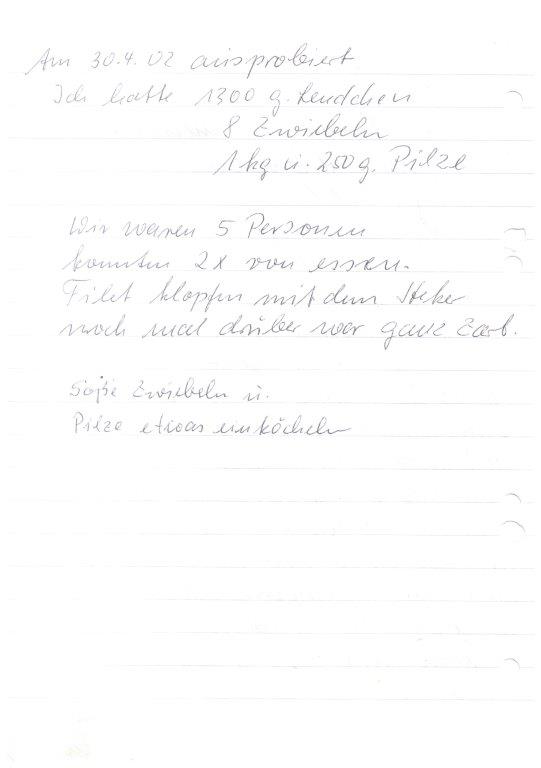 Am 30.4.02 ausprobiert
Ich hatte 1300 g. Lendchen
8 Zwiebeln
1 kg u. 250 g. Pilze
Wir waren 5 Personen
konnten 2x von essen.
Filet klopfen mit dem Steker
noch mal drüber war ganz zart.
Soße Zwiebeln u.
Pilze etwas einköcheln